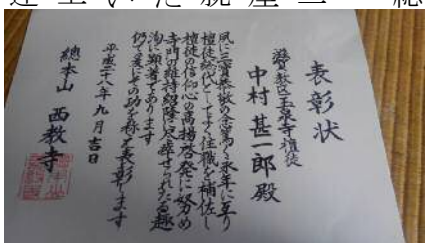 表彰状
滋賀教区玉泉寺檀徒
中村甚一郎殿
夙に三宝崇敬の念篤く永年に亘り
檀徒総代としてよく住職を補佐し
檀徒の信仰心の高揚啓発に努め
寺門の維持紹隆に尽瘁せられたる趣
洵に顕著であります
仍て茲にその功を称え表彰します
平成二十八年九月吉日
總本山 西教寺